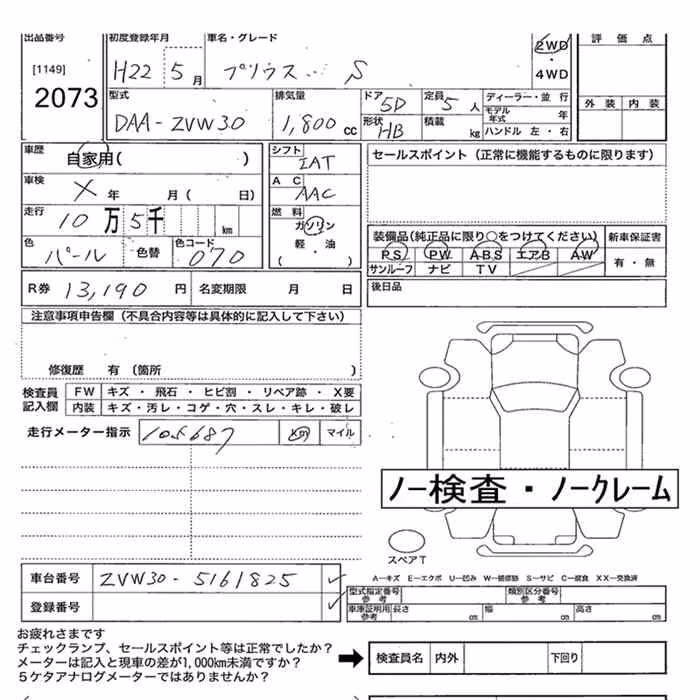 出品番号 初度登録年月 車名・グレード 2WD ・ 4WD 評価点
[1149] H22 5月 プリウス S
2073 外装 内装
型式 排気量 ドア 5D 定員 5人 ディーラー・並行
DAA-ZVW30 1,800cc 形状 HB 積載 kg モデル年式 年
ハンドル 左・右
車歴 自家用( ) シフト IAT セールスポイント(正常に機能するものに限ります)
車検 X年 月( 日) AC AAC
走行 10万5千 km 燃料 ガソリン 軽・油 ( )
装備品(純正品に限り○をつけてください) 新車保証書
色 パール 色替 色コード 070 PS PW ABS エアB AW 有・無
サンルーフ ナビ TV
R券 13,190円 名変期限 月 日 後日品
注意事項申告欄(不具合内容等は具体的に記入して下さい)
修復歴 有(箇所 )
検査員記入欄 FW キズ・飛石・ヒビ割・リペア跡・X要
内装 キズ・汚レ・コゲ・穴・スレ・キレ・破レ
走行メーター指示 105687 km マイル
ノー検査・ノークレーム
スペアT
A－キズ E－エクボ U－凹み W－補修跡 S－サビ C－腐食 XX－交換済
車台番号 ZVW30-5161825 ✓ 型式指定番号 参考 類別区分番号 参考
登録番号 ✓ 車庫証明用 参考 長さ cm 幅 cm 高さ cm
お疲れさまです
チェックランプ、セールスポイント等は正常でしたか?
メーターは記入と現車の差が1,000km未満ですか? ➡ 検査員名 内外 下回り
5ケタアナログメーターではありませんか?